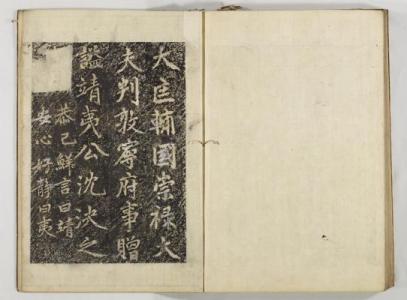 大匡輔國崇禄大
夫判敦寧府事贈
諡靖夷公沈決之
恭己鮮言曰靖
安心好静曰夷